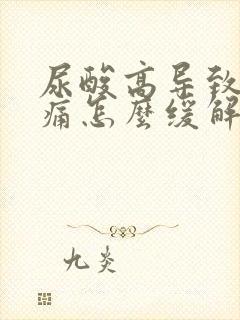 尿酸高导致
痛怎麼缓解
九炎